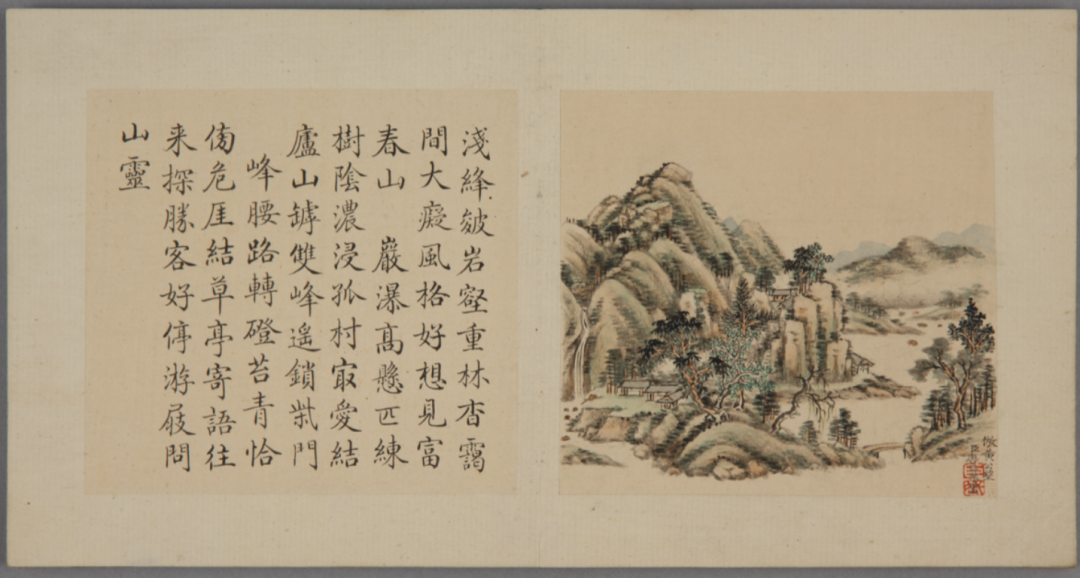 淺絳皴岩壑重林杳靄
間大癡風格好想見富
春山 巖瀑高懸匹練
樹陰濃浸孤村㝡愛結
廬山罅雙峰遙鎖柴門
峰腰路轉磴苔青恰
傍危厓結草亭寄語往
来探勝客好停游屐問
山靈
倣黃公望